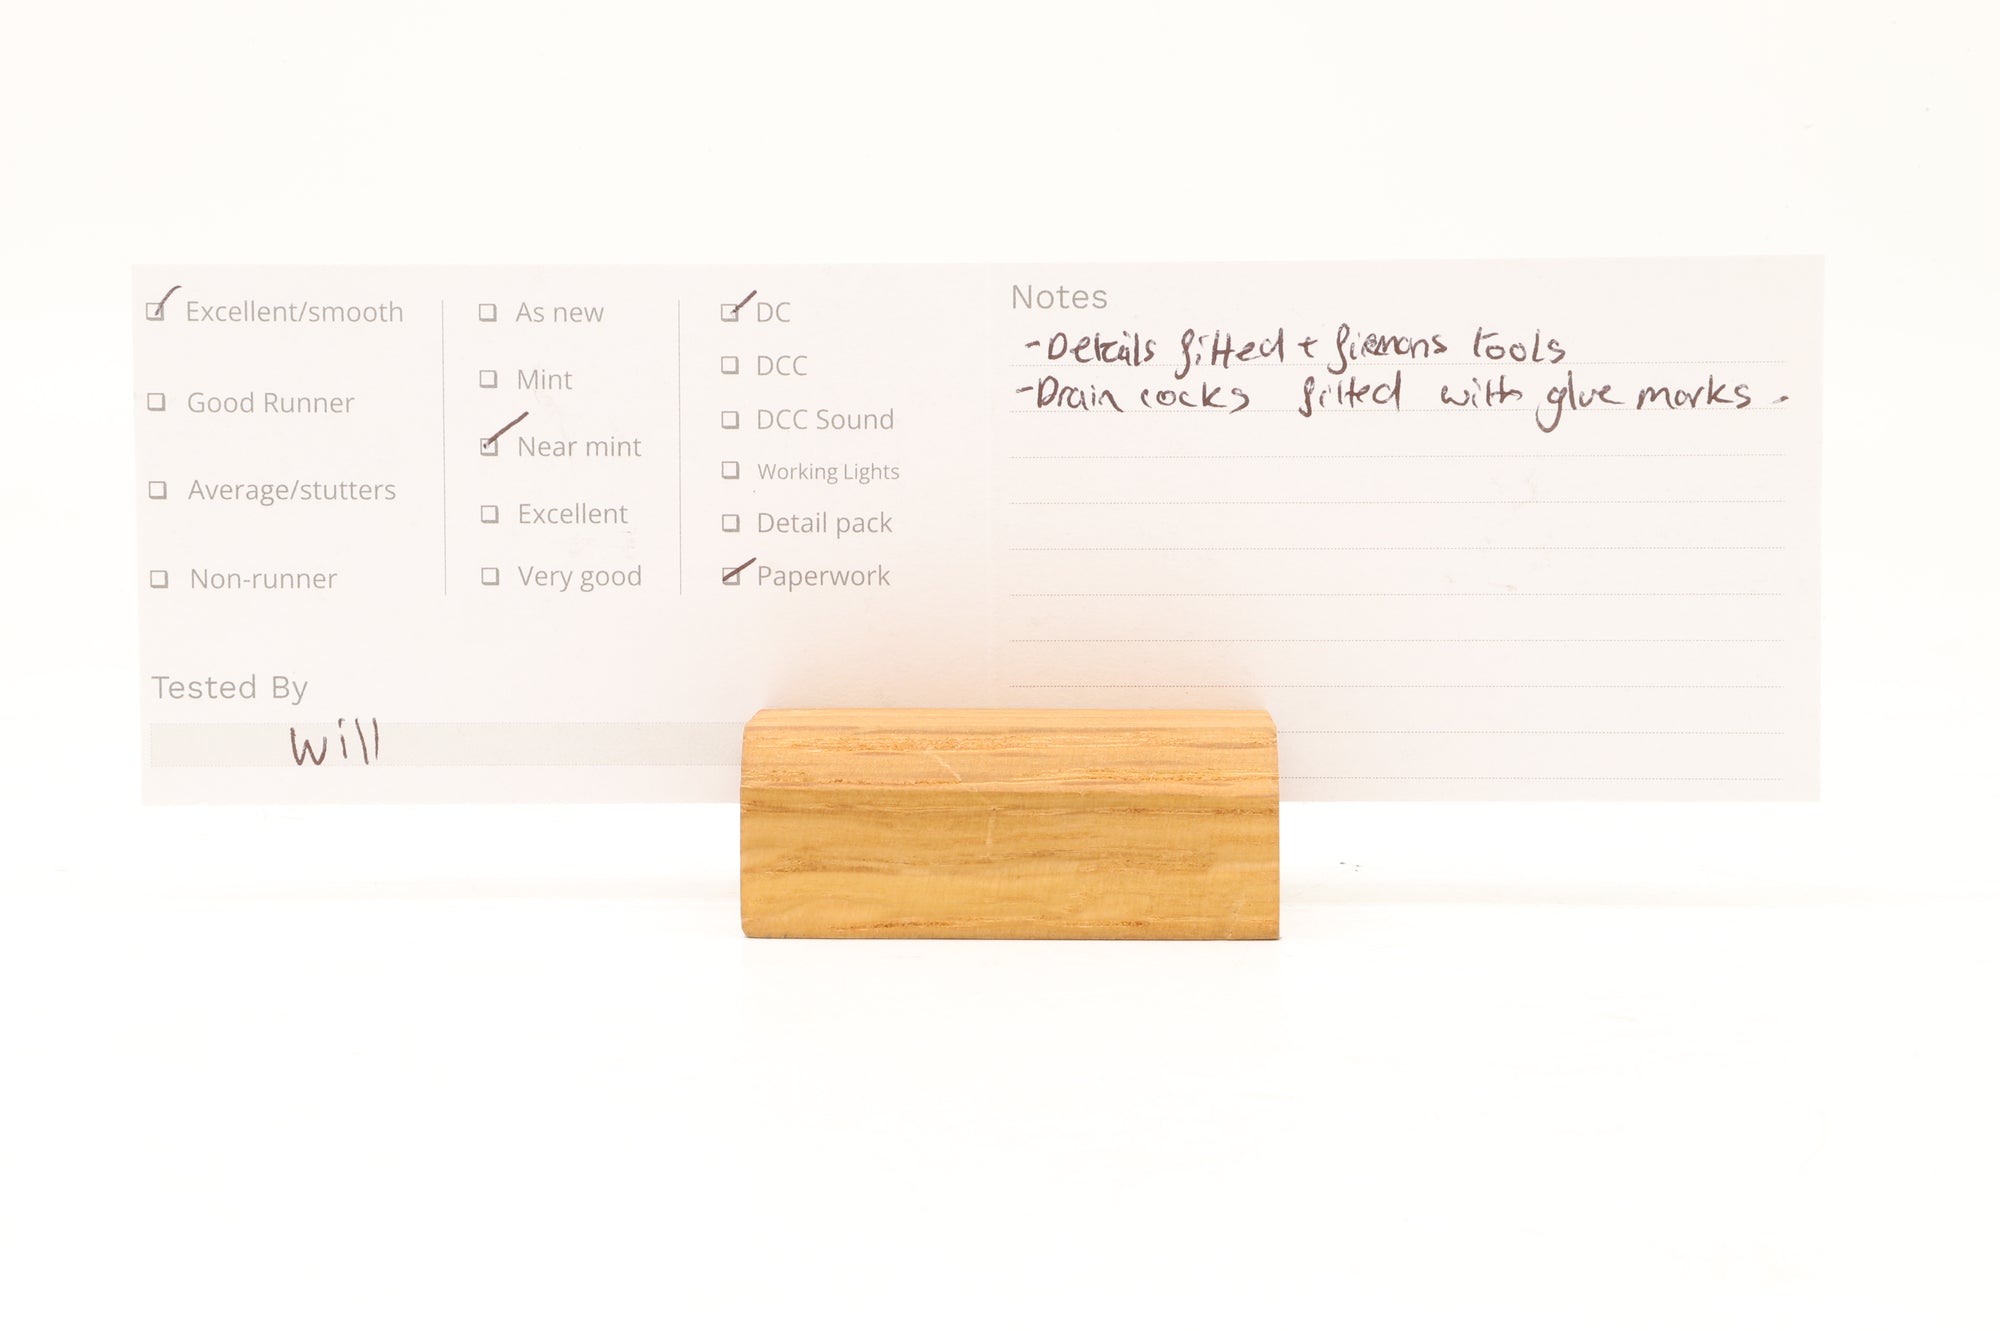 Excellent/smooth
Good Runner
Average/stutters
Non-runner
As new
Mint
Near mint
Excellent
Very good
DC
DCC
DCC Sound
Working Lights
Detail pack
Paperwork
Tested By
Will
Notes
- Details fitted + firemans tools
- Drain cocks fitted with glue marks.